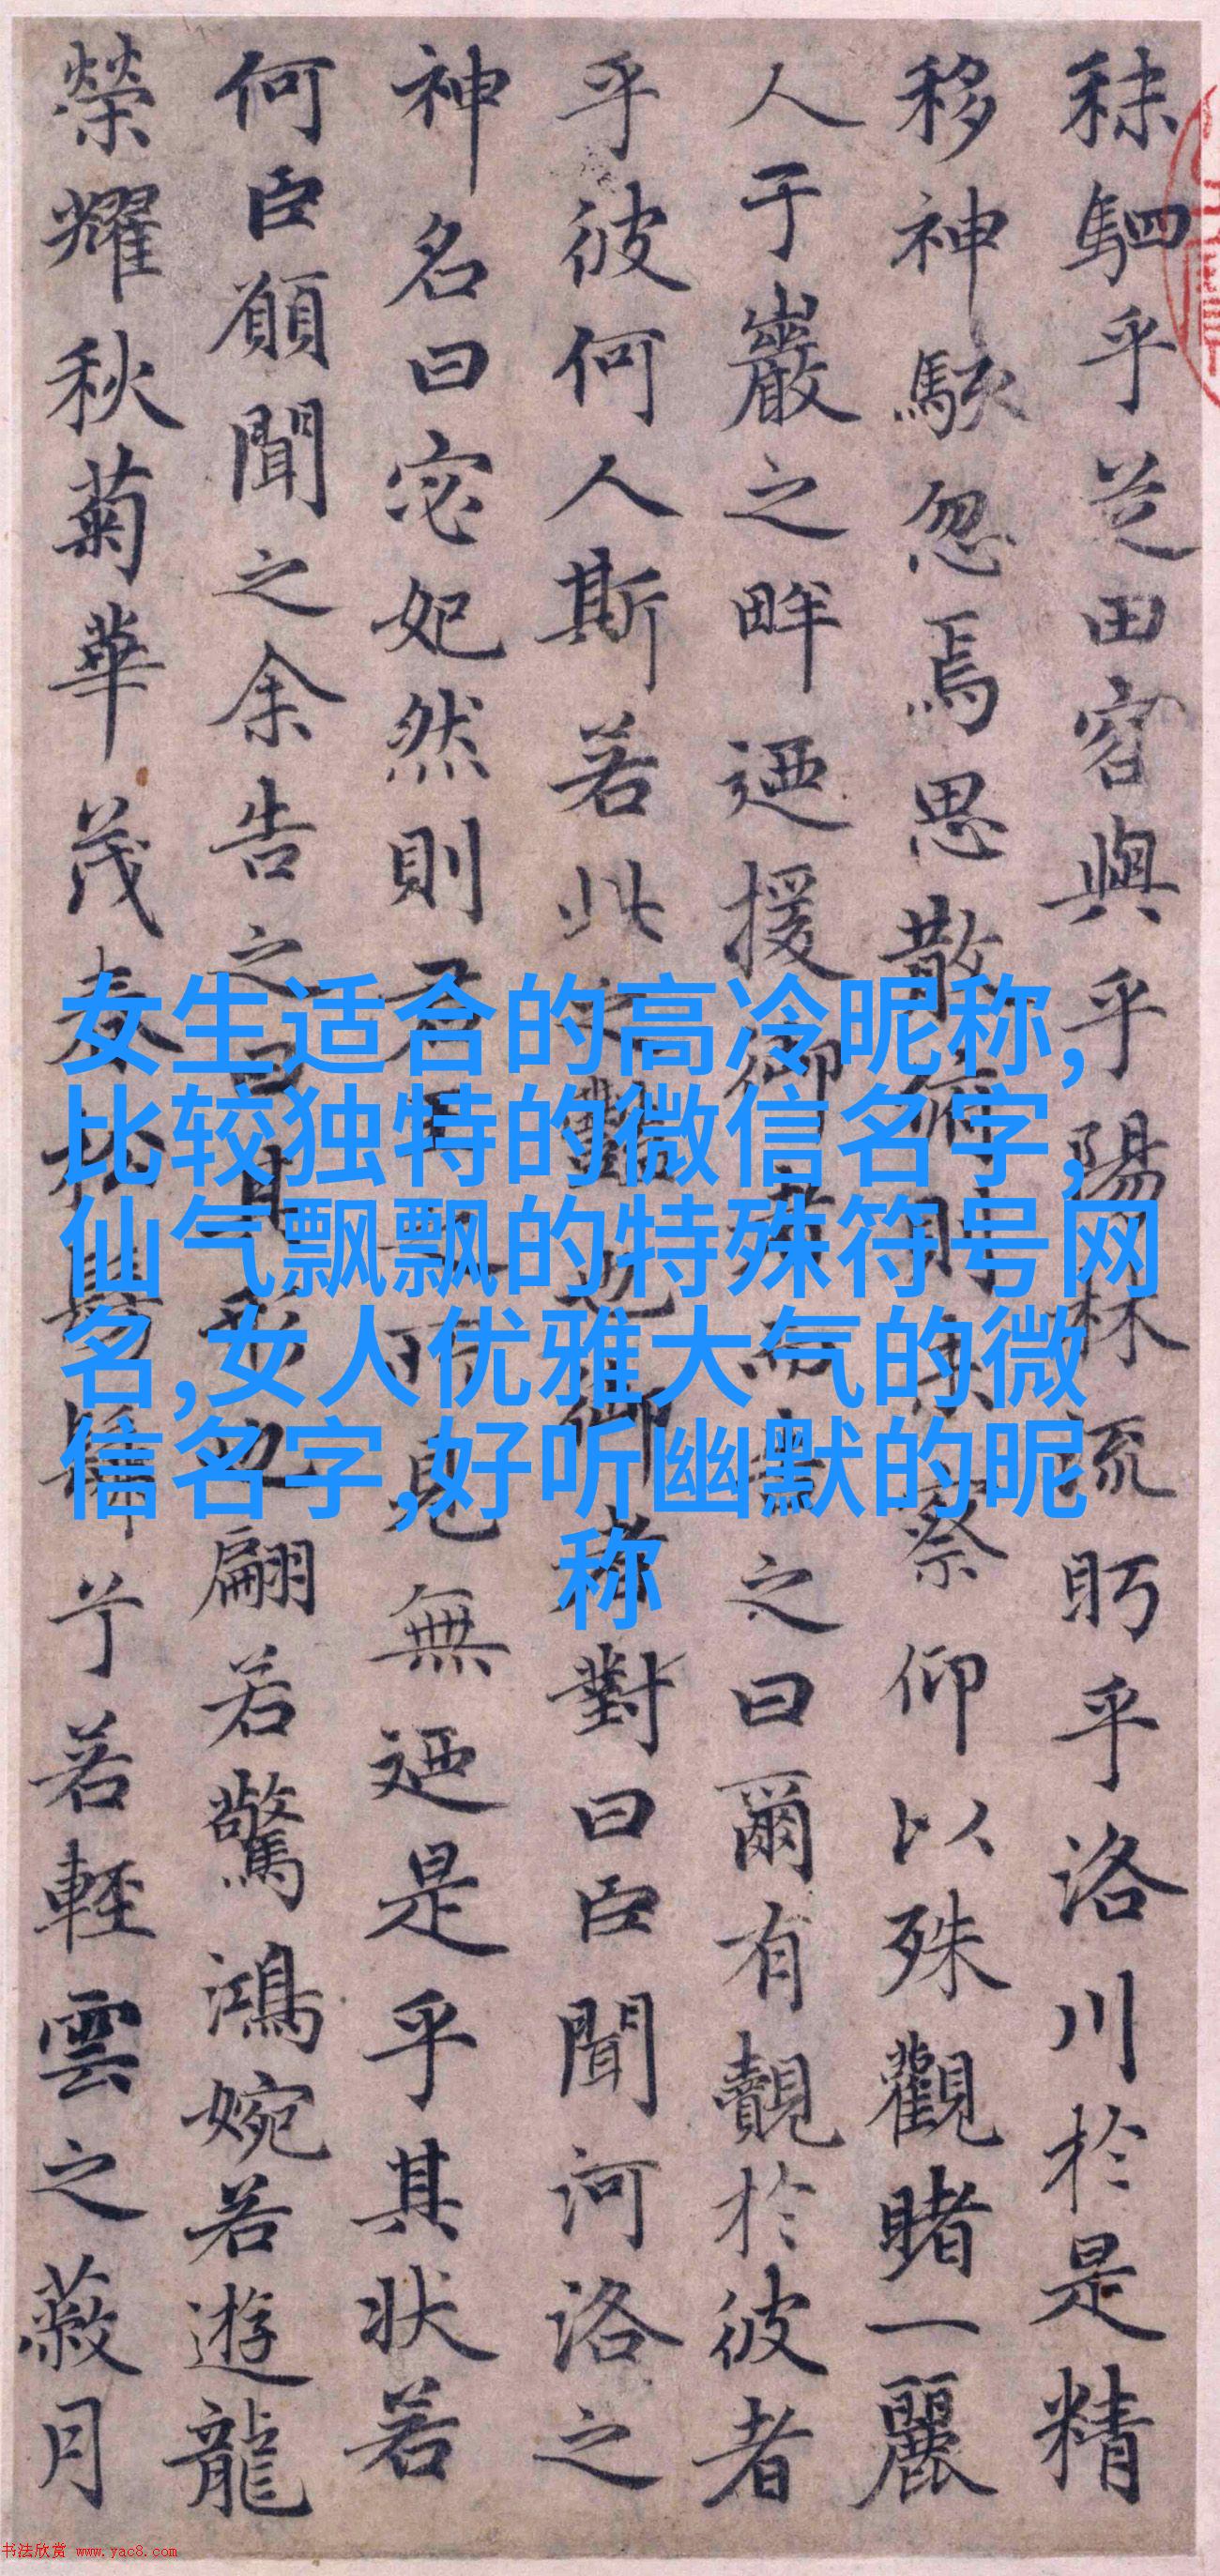 秣駟乎芝田容與乎陽林流眄乎洛川於是精
移神駭忽焉思散俯則未察仰以殊觀睹一麗
人于巖之畔迺援御者而告之曰爾有覿於彼者
乎彼何人斯若此之豔也御者對曰臣聞河洛之
神名曰宓妃然則君王之所見無迺是乎其状若
何臣願聞之余告之曰其形也翩若驚鴻婉若遊龍
榮耀秋菊華茂春松髣髴兮若輕雲之蔽月
女生适合的高冷昵称,
比较独特的微信名字,
仙气飘飘的特殊符号网
名,女人优雅大气的微
信名字,好听幽默的昵
称
书法欣赏 www.yac8.com